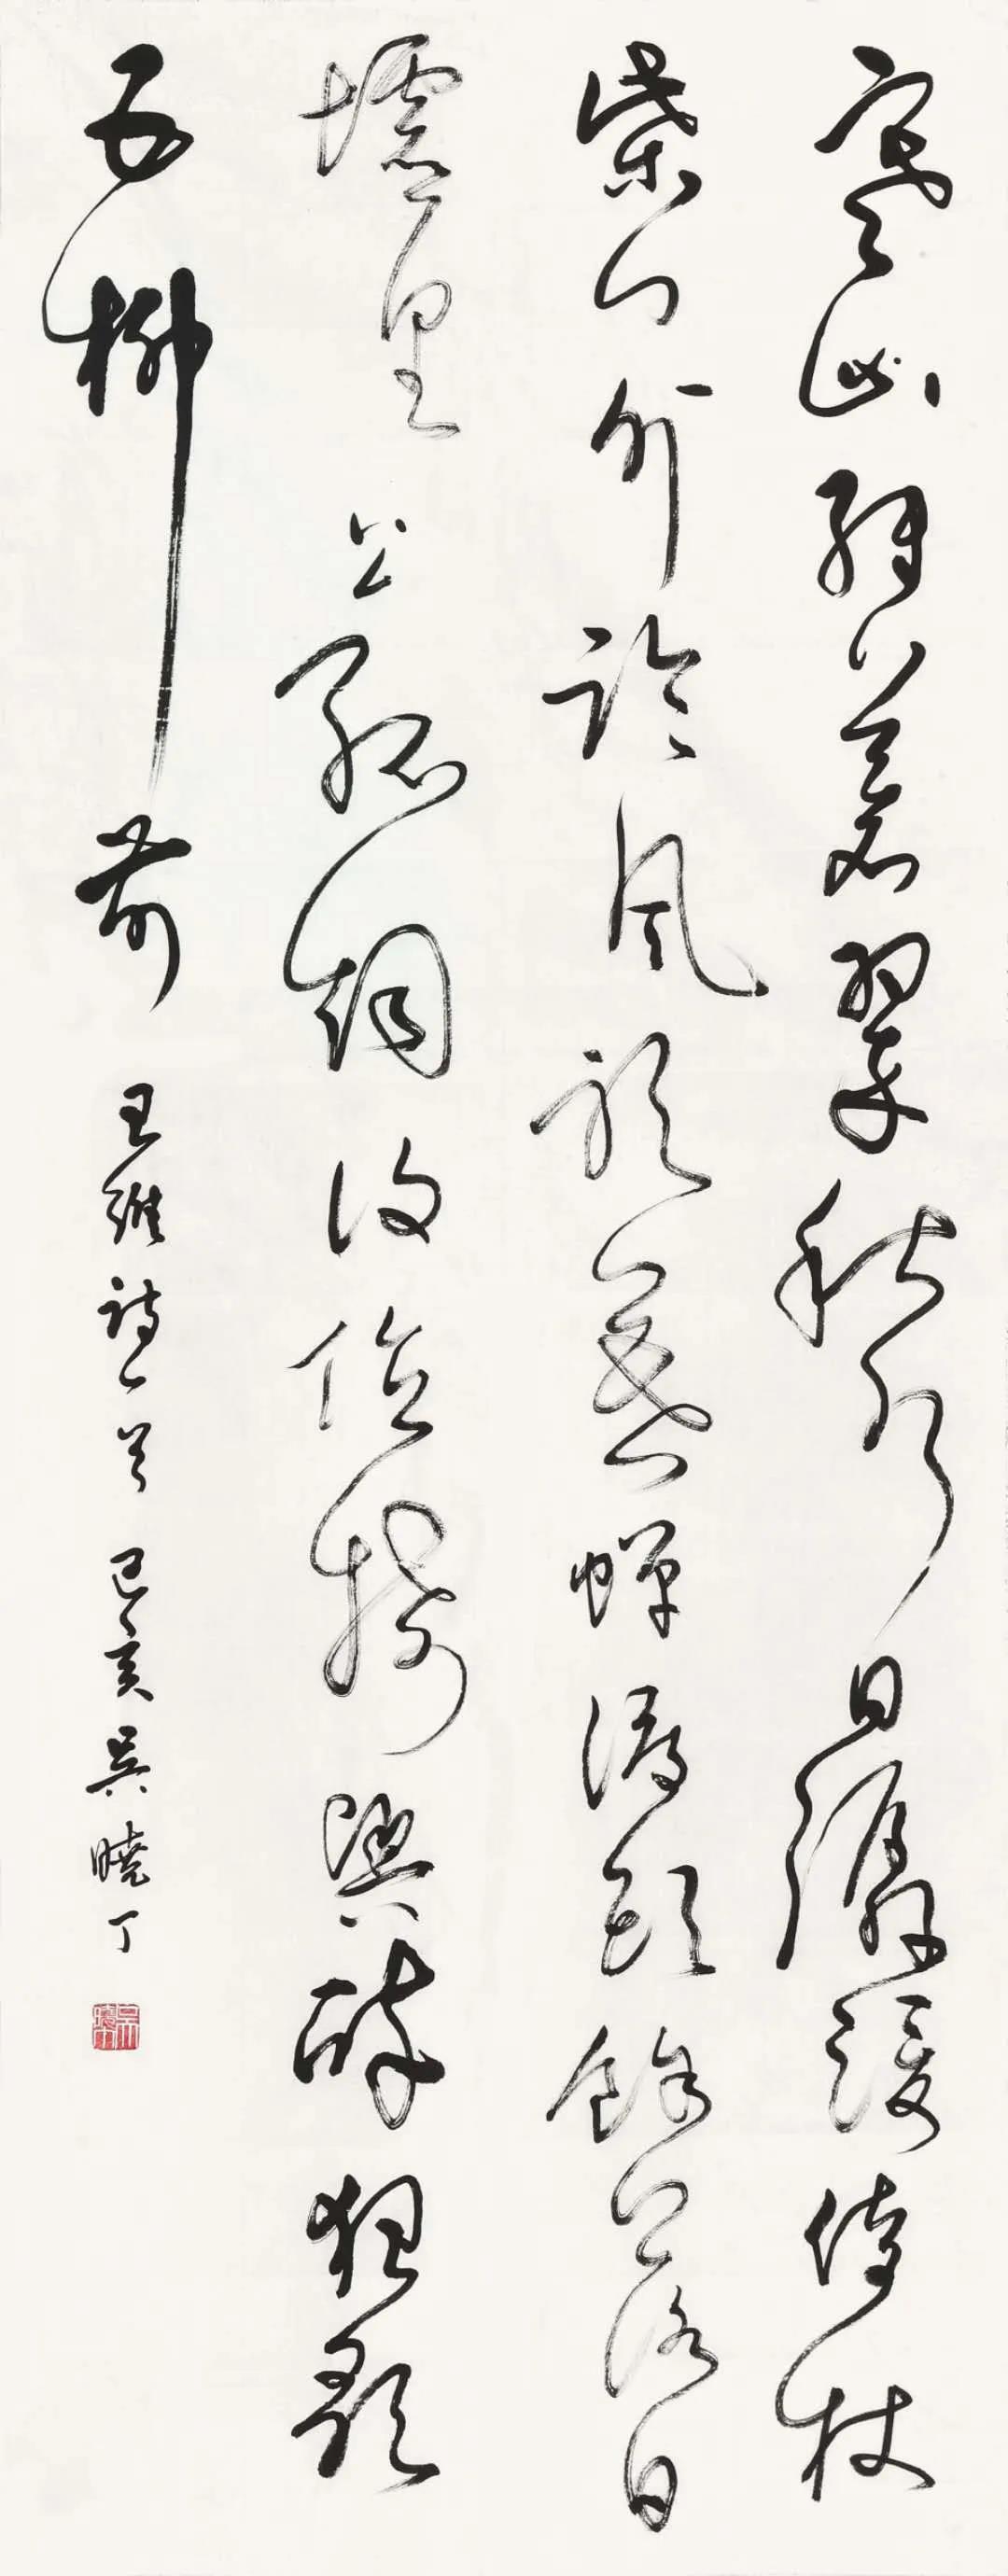 寒山轉蒼翠秋水日潺湲倚杖
柴門外臨風聽暮蟬渡頭餘落日
墟里上孤烟復值接輿醉狂歌
五柳前 王維詩一首 己亥 吳曉丁